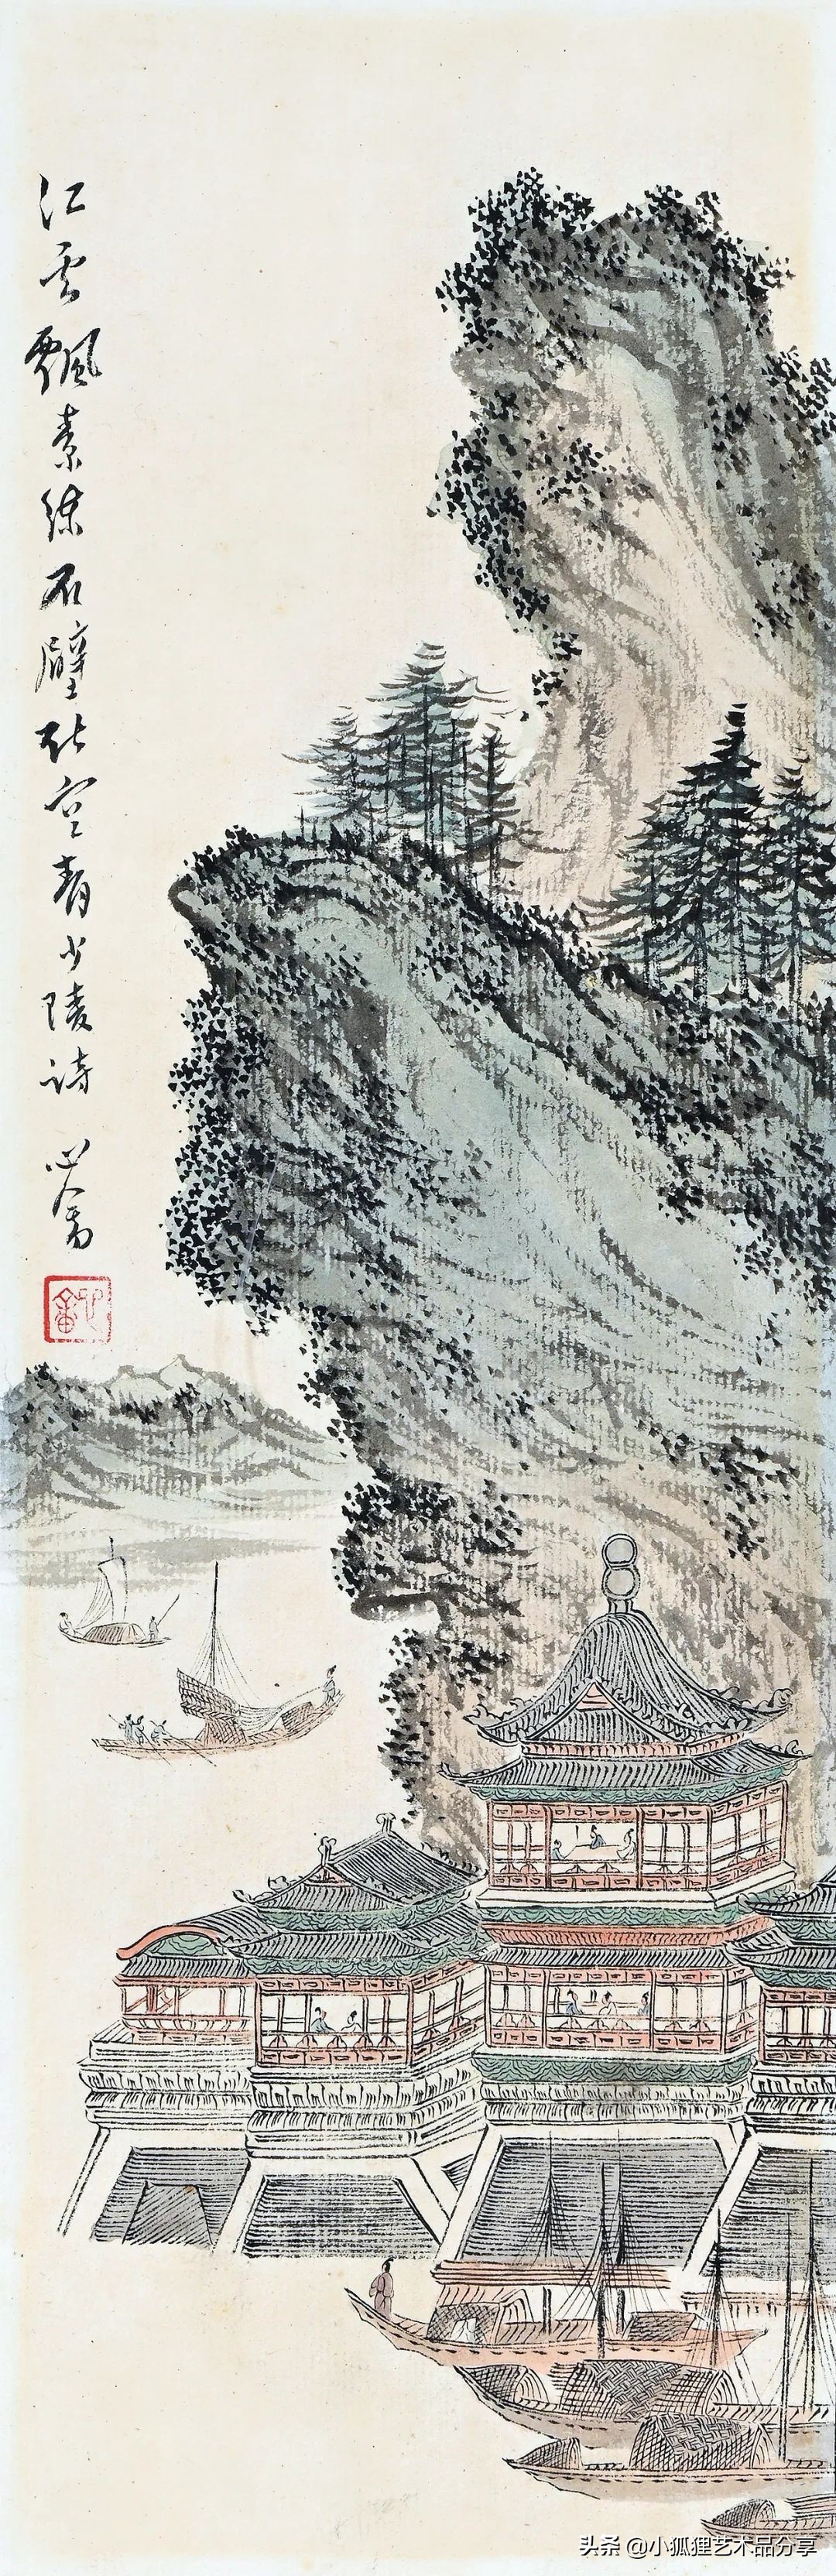 江雲飄素練石壁斷空青少陵詩 心畬
心畬
头条 @小狐狸艺术品分享